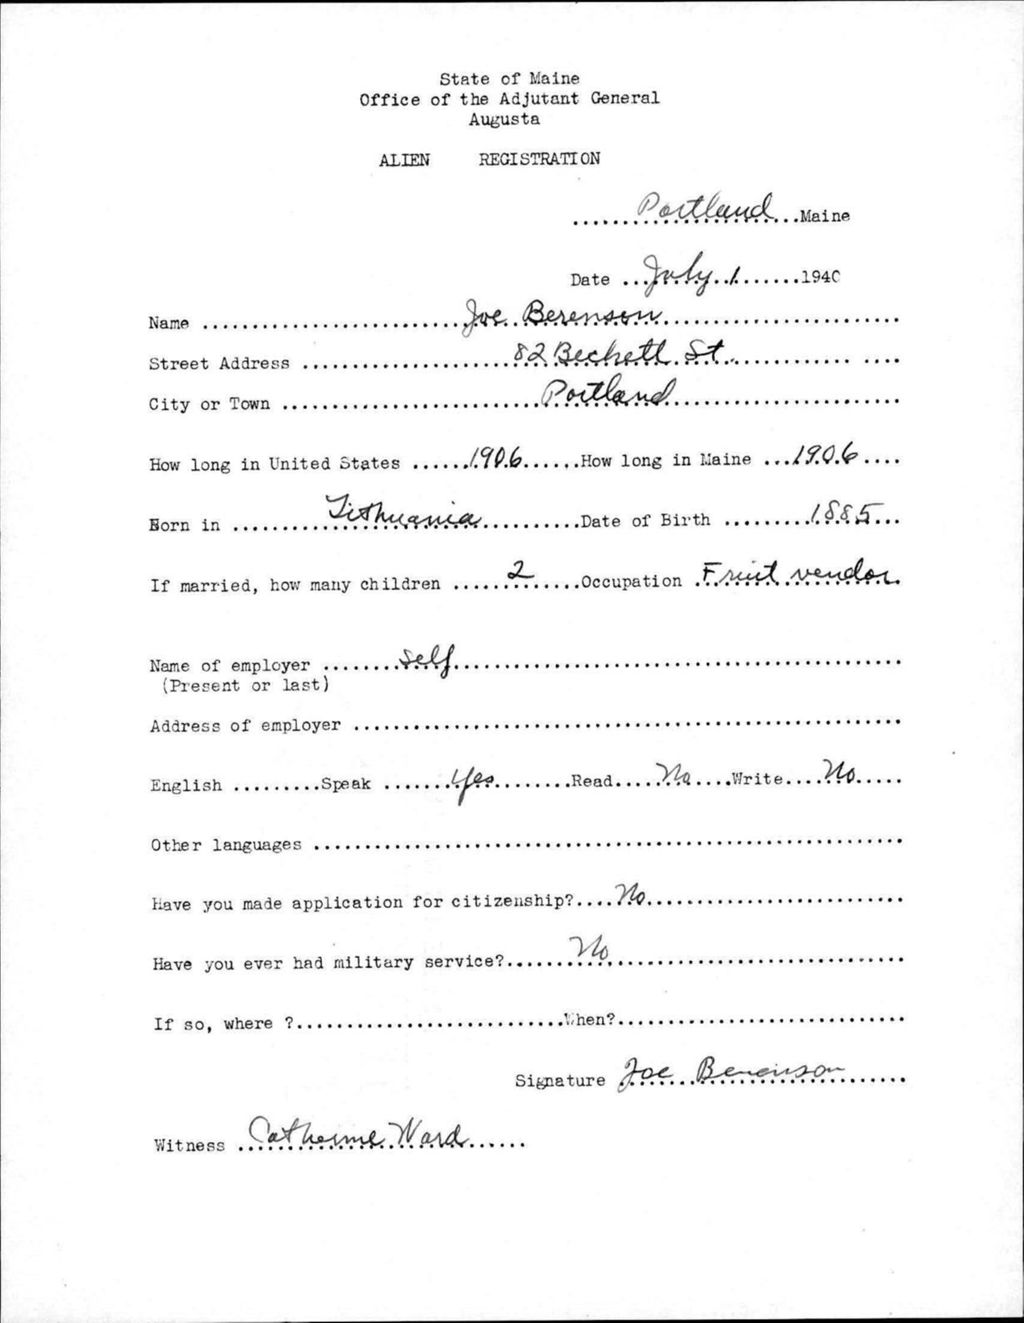 State of Maine
Office of the Adjutant General
Augusta
ALIEN REGISTRATION
......Portland...Maine
Date ...July 1.......1940
Name ..........Joe Berenson..........
Street Address ..........82 Beckett St...........
City or Town ..........Portland..........
How long in United States ......1906......How long in Maine ...1906....
Born in ..........Lithuania..........Date of Birth .........1885...
If married, how many children ......2......Occupation .Fruit vendor.
Name of employer ........self..........
(Present or last)
Address of employer ..........
English .........Speak .......Yes.........Read.....No....Write....No.....
Other languages ..........
Have you made application for citizenship?....No..........
Have you ever had military service?.......No..........
If so, where ?..........When?..........
Signature Joe Berenson......
Witness ...Catherine Ward......